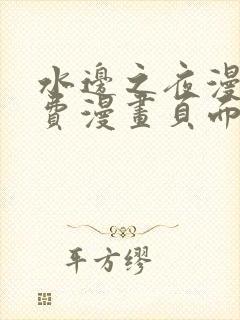 水邊之夜漫
費漫畫頁面
平方缪